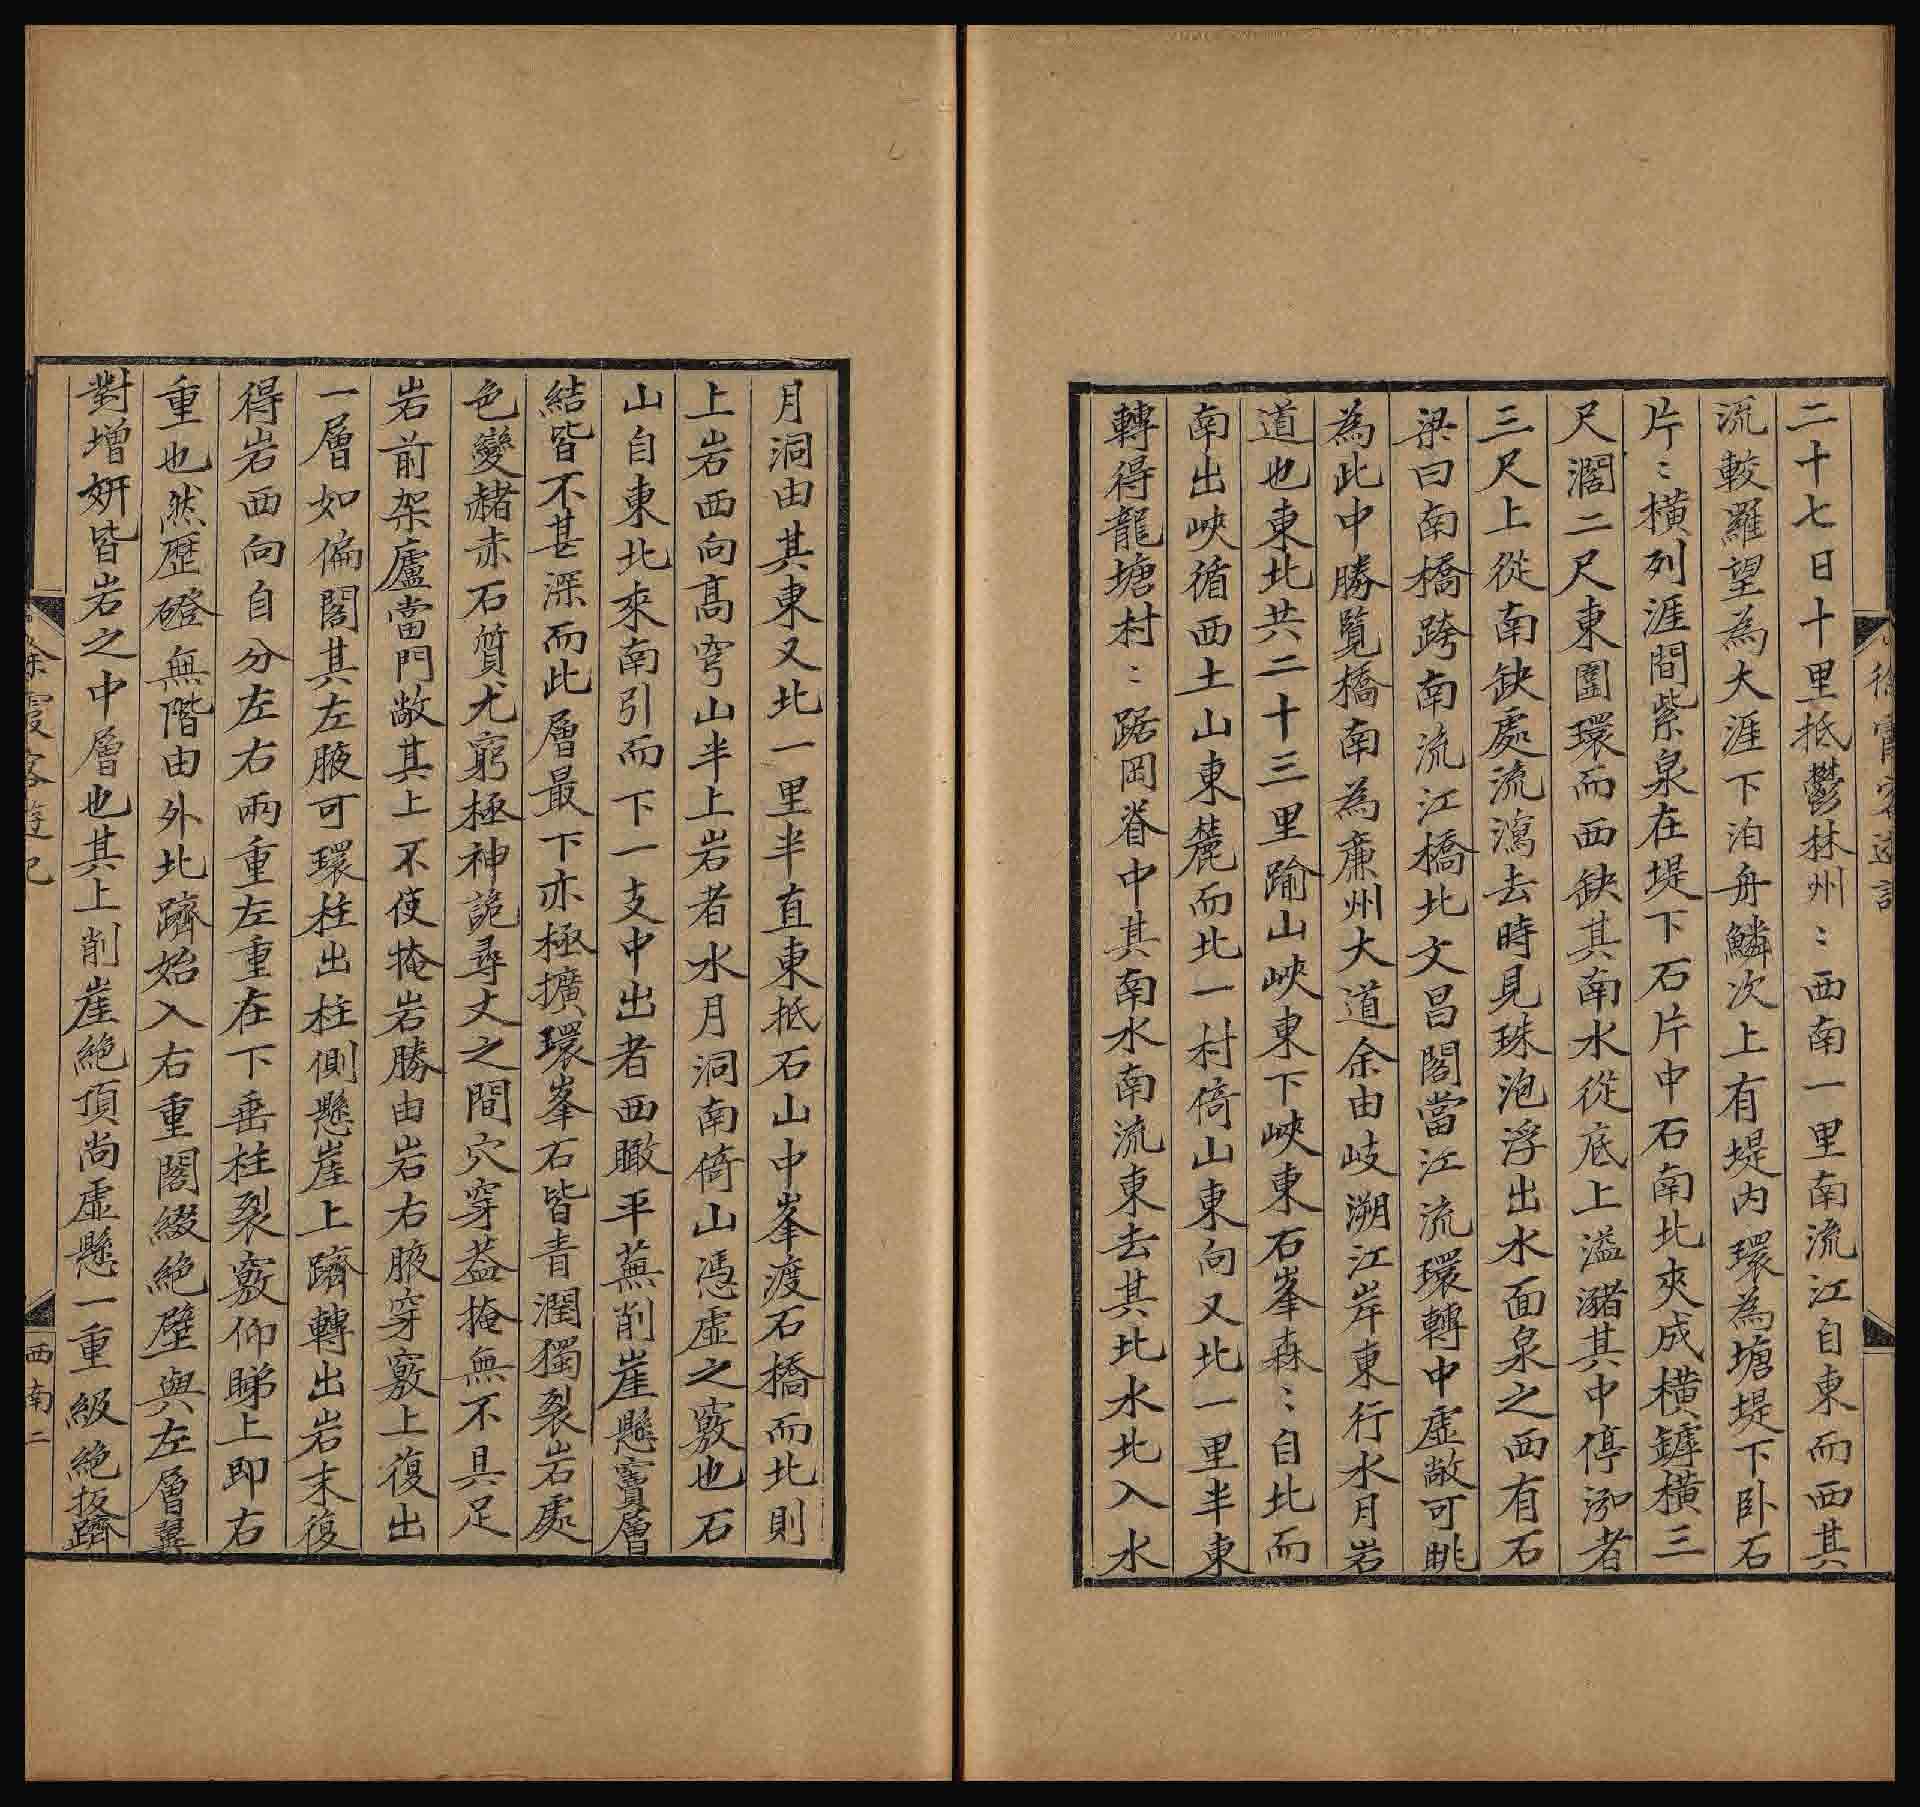 二十七日十里抵鬱林州〻西南一里南流江自東而西其
流較羅望為大涯下泊舟鱗次上有堤內環為塘堤下卧石
片〻橫列涯間紫泉在堤下石片中石南北夾成橫罅橫三
尺濶二尺東圍環而西缺其南水從底上溢瀦其中停泓者
三尺上從南缺處流瀉去時見珠泡浮出水面泉之西有石
梁曰南橋跨南流江橋北文昌閣當江流環轉中虛敞可眺
為此中勝覽橋南為廉州大道余由岐溯江岸東行水月岩
道也東北共二十三里踰山峽東下峽東石峯森〻自北而
南出峽循西土山東麓而北一村倚山東向又北一里半東
轉得龍塘村〻踞岡脊中其南水南流東去其北水北入水
月洞由其東又北一里半直東抵石山中峯渡石橋而北則
上岩西向高穹山半上岩者水月洞南倚山憑虛之竅也石
山自東北來南引而下一支中出者西瞰平蕪削崖懸竇層
結皆不甚深而此層最下亦極擴環峯石皆青潤獨裂岩處
色變赭赤石質尤窮極神詭尋丈之間穴穿葢掩無不具足
岩前架廬當門敞其上不使掩岩勝由岩右腋穿竅上復出
一層如偏閣其左腋可環柱出柱側懸崖上躋轉出岩末復
得岩西向自分左右兩重左重在下垂柱裂竅仰睇上即右
重也然歷磴無階由外北躋始入右重閣綴絕壁與左層翼
對增妍皆岩之中層也其上削崖絕頂尚虛懸一重級絕扳躋
徐霞客遊記
西南二